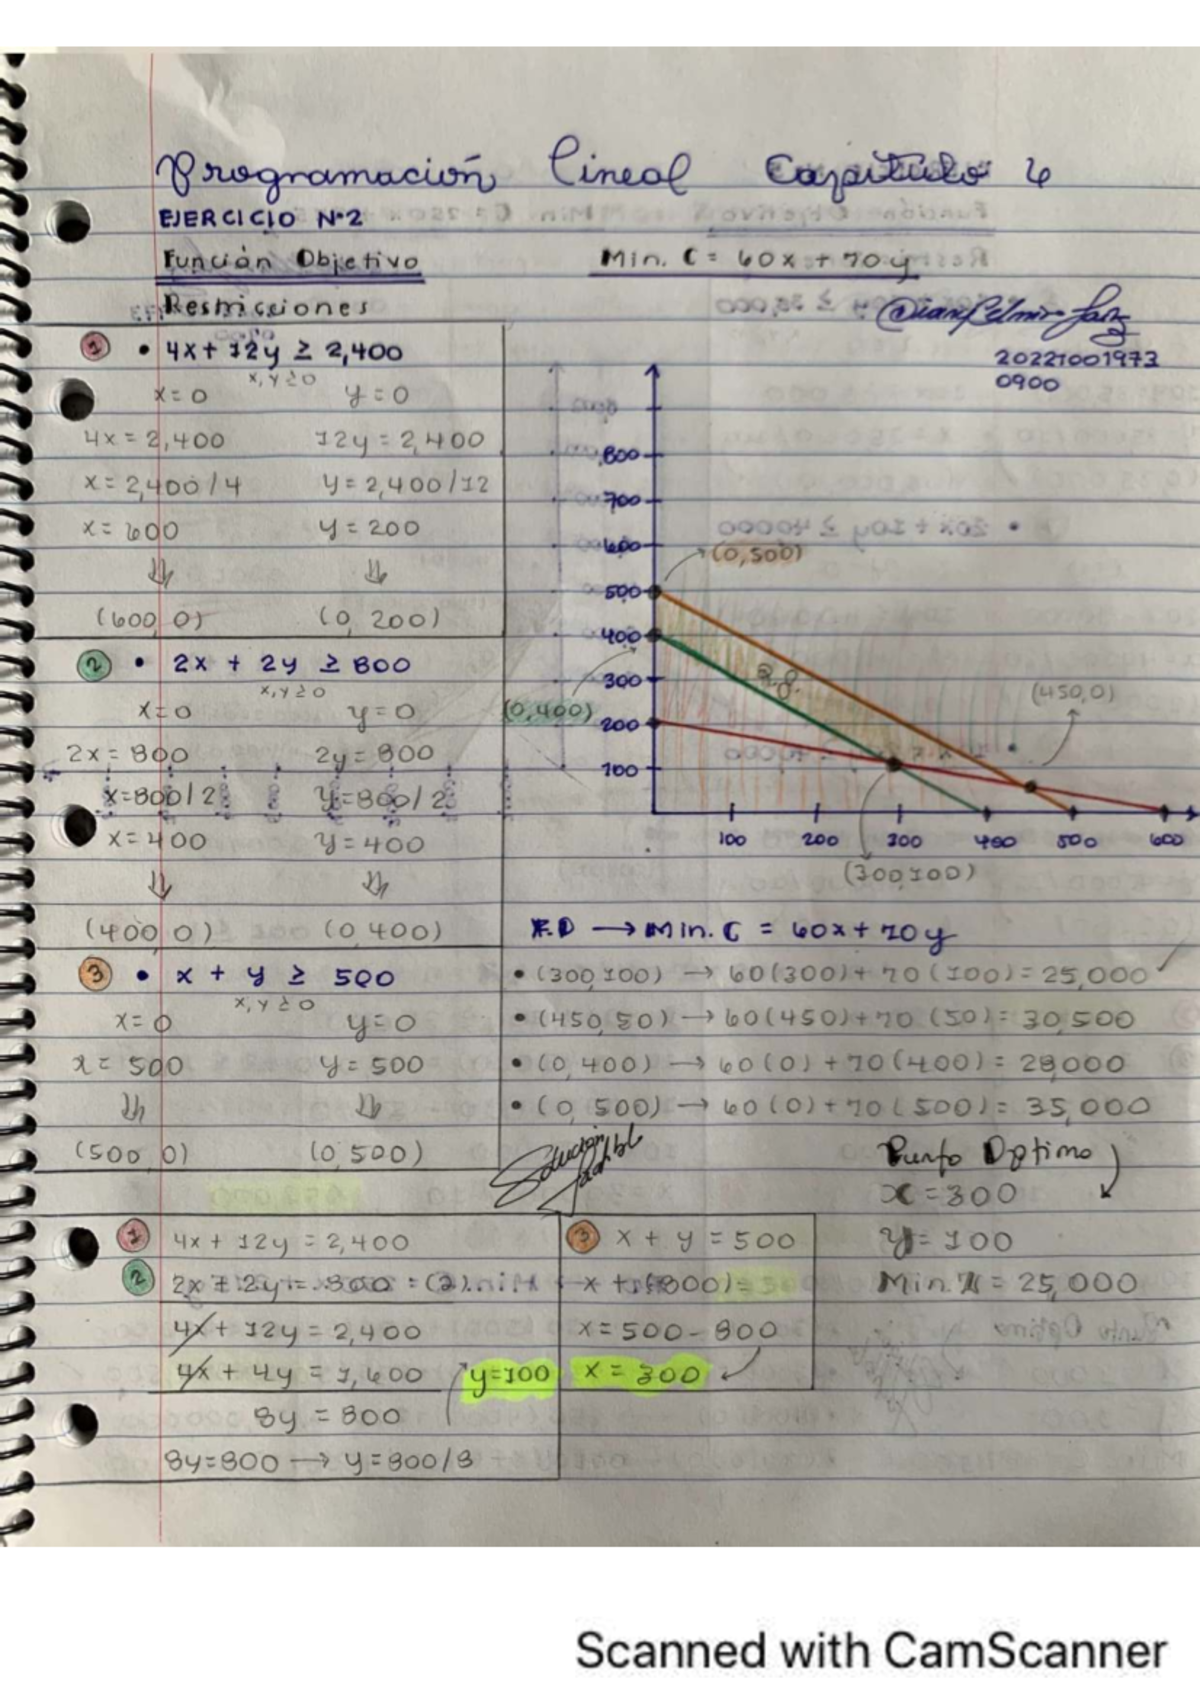 Programación Lineal Capítulo 6
EJERCICIO Nº2
Función Objetivo Min. C = 60x + 70y
Restricciones
1 • 4x + 12y ≥ 2,400
x, y ≥ 0
x=0 y=0
4x = 2,400 12y = 2,400
x = 2,400/4 y = 2,400/12
x = 600 y = 200
(600, 0) (0, 200)
2 • 2x + 2y ≥ 800
x, y ≥ 0
x=0 y=0
2x = 800 2y = 800
x=800/2 y=800/2
x = 400 y = 400
(400, 0) (0, 400)
3 • x + y ≥ 500
x, y ≥ 0
x=0 y=0
x = 500 y = 500
(500, 0) (0, 500)
20221001973
0900
800
700
600
500
400
300
200
100
(0, 500)
(0, 400)
R.F.
(450, 0)
100 200 300 400 500 600
(300, 100)
F.O → Min. C = 60x + 70y
• (300, 100) → 60(300) + 70(100) = 25,000 ✓
• (450, 50) → 60(450) + 70(50) = 30,500
• (0, 400) → 60(0) + 70(400) = 28,000
• (0, 500) → 60(0) + 70(500) = 35,000
Solución
Punto Optimo
x = 300
y = 100
Min. = 25,000
1 4x + 12y = 2,400
2 2x + 2y = 800 = (2)
4x + 12y = 2,400
4x + 4y = 1,600
8y = 800
8y=800 → y=800/8
y=100
3 x + y = 500
x = 300
Scanned with CamScanner